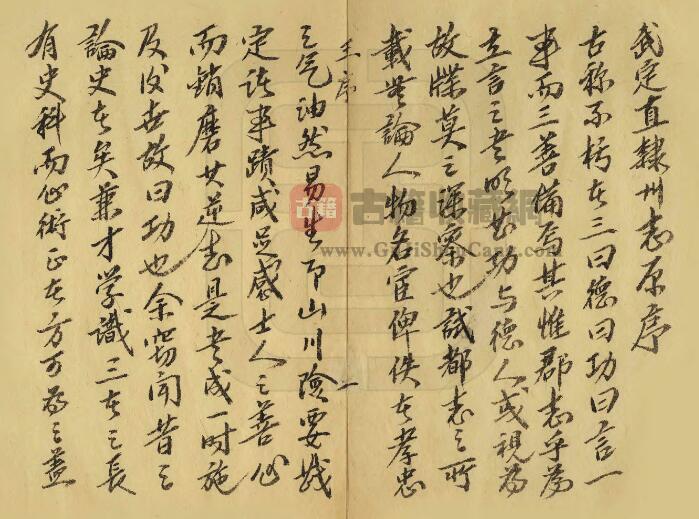 武定直隸州志原序
古称不朽在三曰德曰功曰言一
事而三善備焉其惟郡志乎為
立言之書昭
功与德人或視為
故牒莫之深察也試都志之所
載
論人物名宦俾佚在孝忠
王序
一
之气油然易生而山川險要
定該事蹟咸足感士人之善心
而銷磨其逆志是書成一時施
及後世故曰功也余竊聞昔之
論史者矣兼才学識三者之長
有史科而心術正者方可為之蓋
古籍
古籍收藏網
www.GuJiShouCang.com